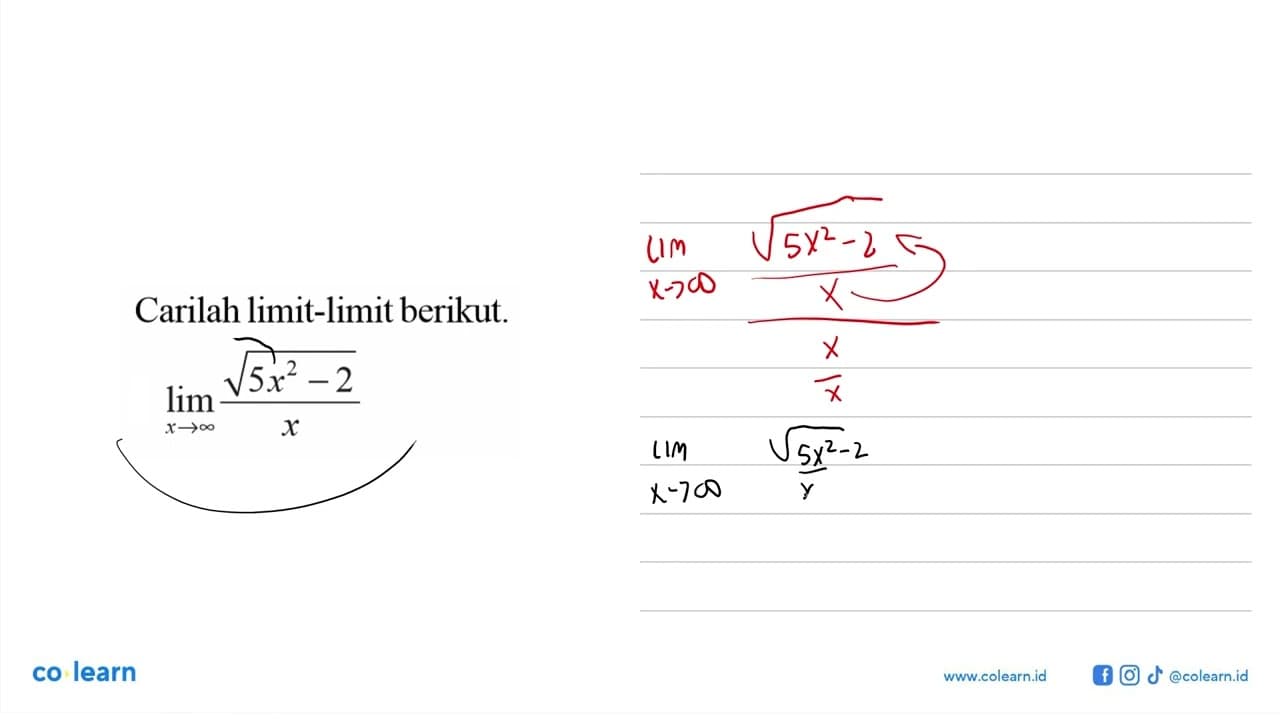 Carilah limit-limit berikut.
lim x→∞ √(5x² − 2) / x
LIM x→∞ √(5x² - 2) / x
x / x
LIM x→∞ √(5x² - 2
x
co learn
www.colearn.id @colearn.id